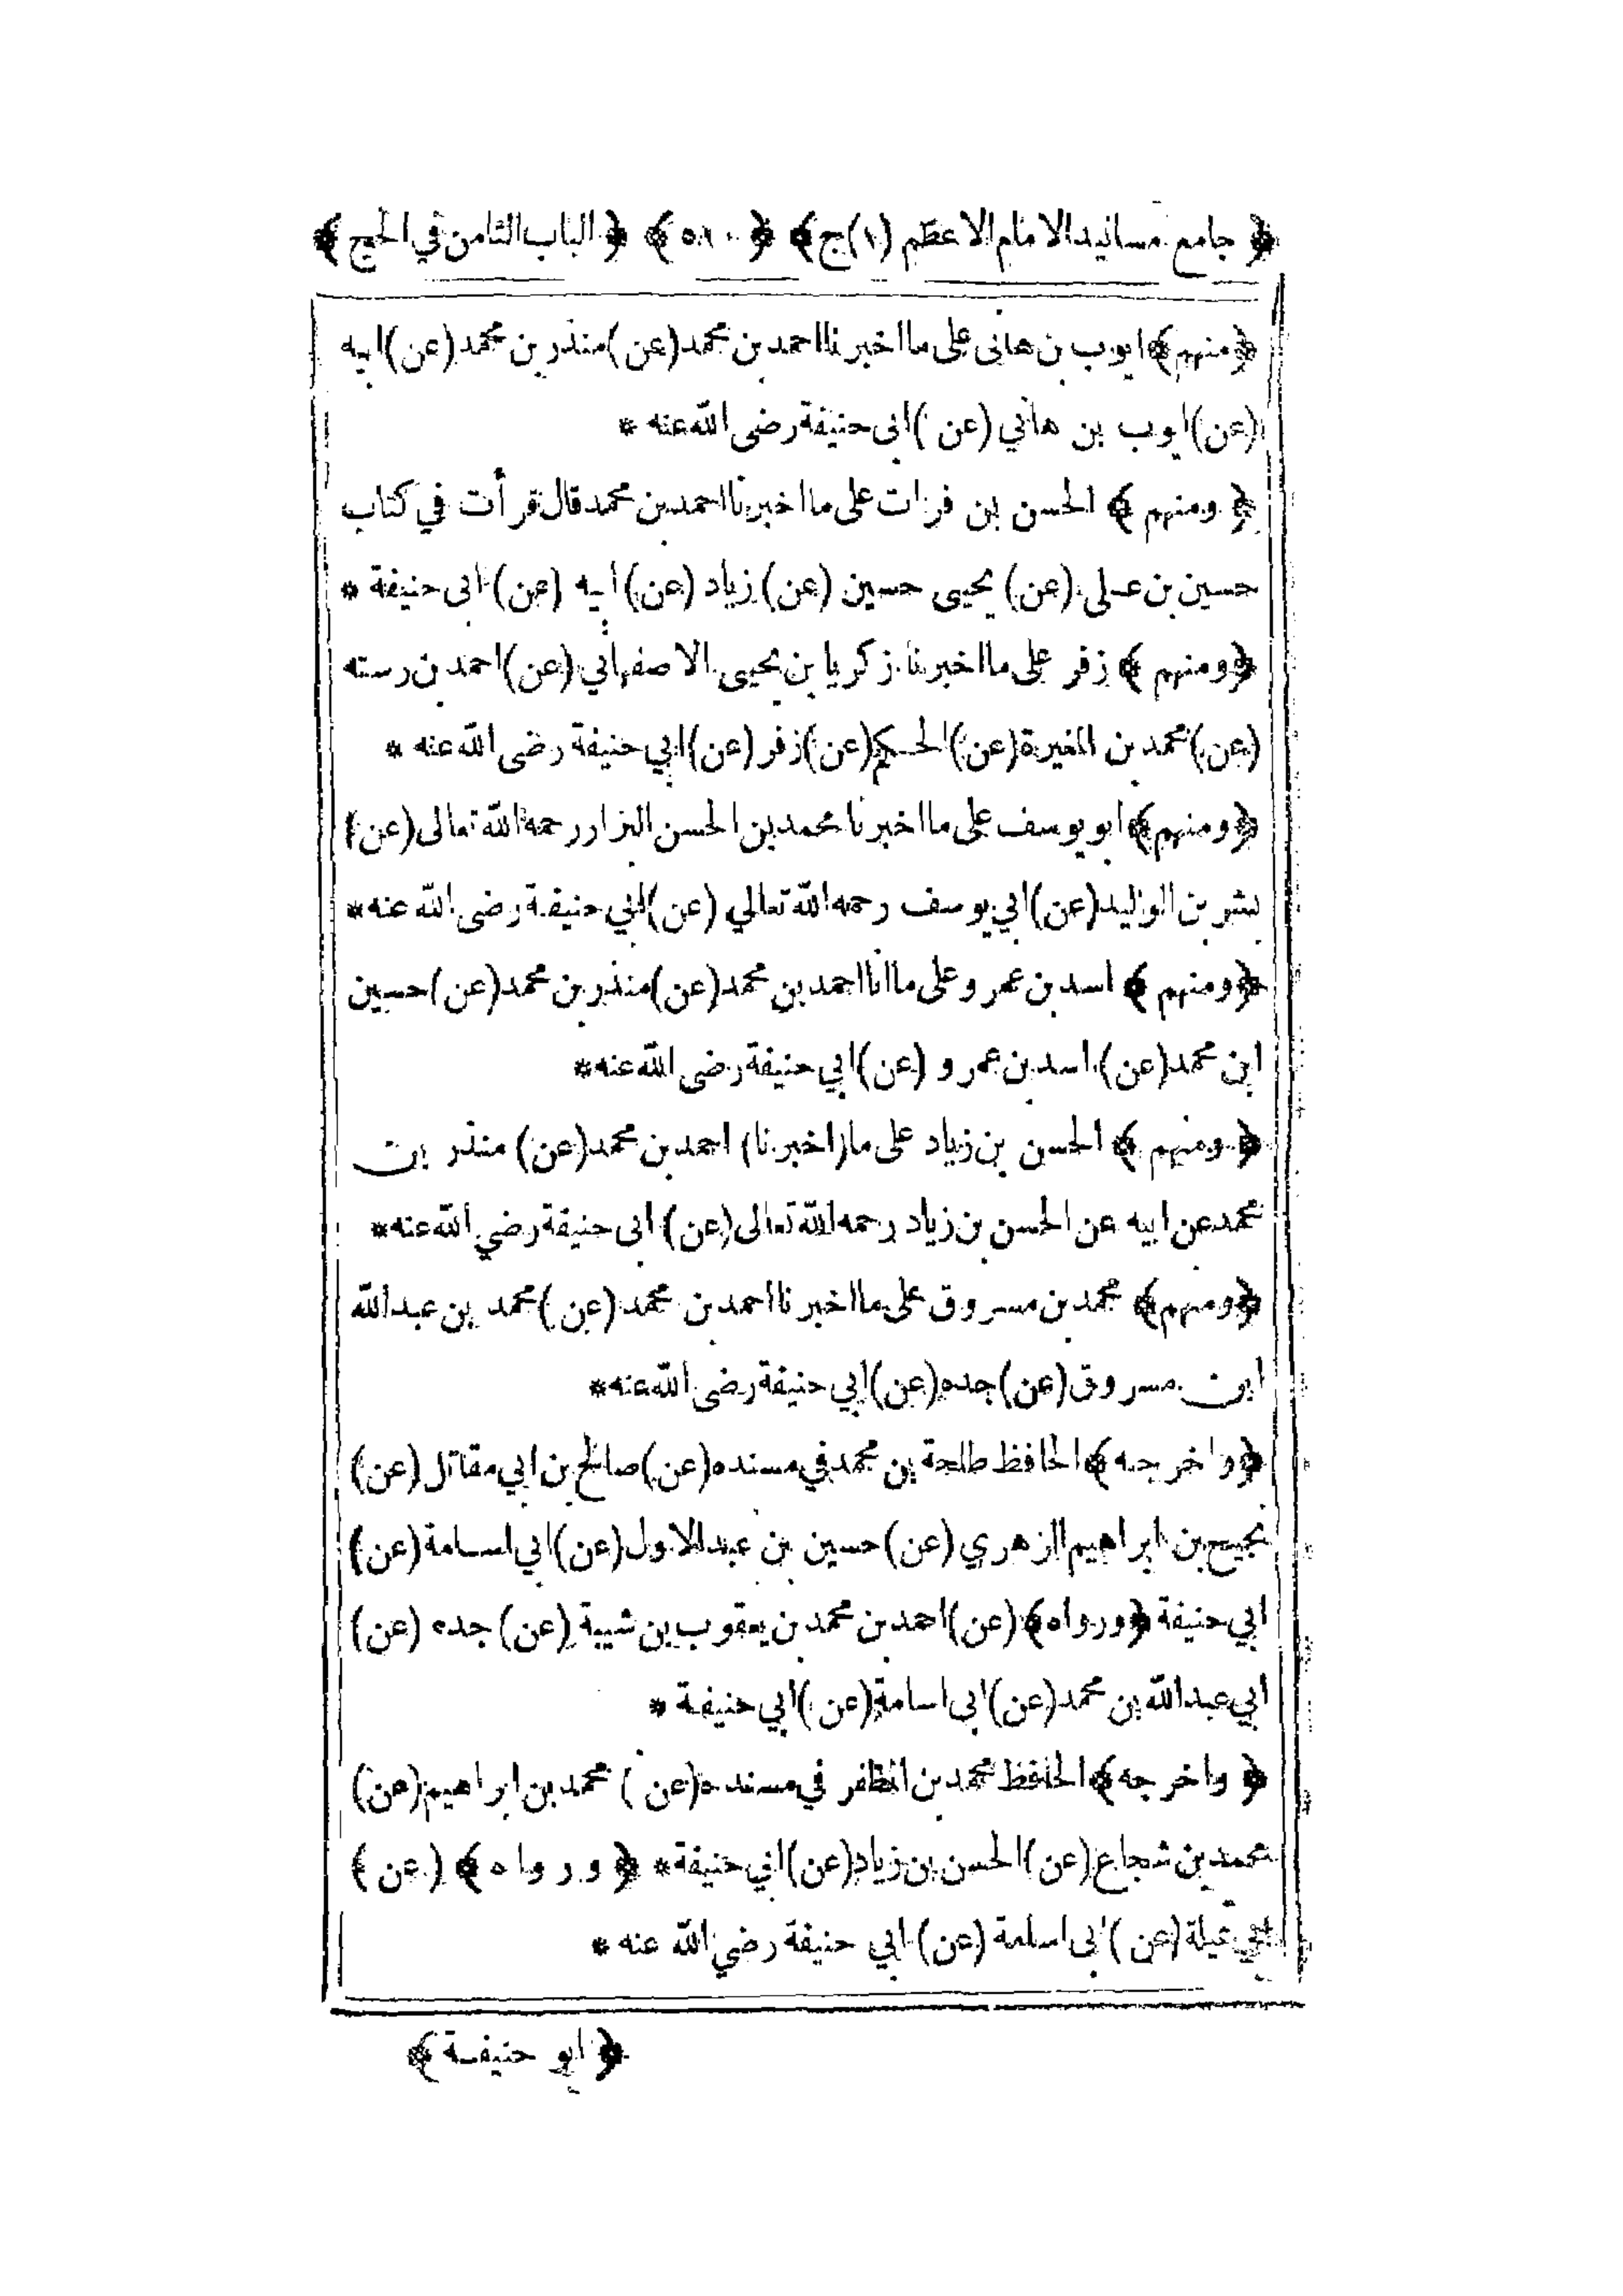 ﴿ جامع مسانيد الامام الاعظم (١)ج﴾ ﴿٥٨٠﴾ ﴿ الباب الثامن في الحج ﴾
﴿منهم﴾ ايوب بن هانى على ما اخبرنا احمد بن محمد (عن) منذر بن محمد (عن) ابيه
(عن) ايوب بن هاني (عن) ابى حنيفة رضى الله عنه *
﴿ ومنهم ﴾ الحسن بن فرات على ما اخبرنا احمد بن محمد قال قرأت في كتاب
حسين بن على (عن) يحيى حسين (عن) زياد (عن) ابيه (عن) ابى حنيفة *
﴿ومنهم ﴾ زفر على ما اخبرنا زكريا بن يحيى الاصفهاني (عن) احمد بن رسته
(عن) محمد بن المغيرة (عن) الحكم (عن) زفر (عن) ابي حنيفة رضى الله عنه *
﴿ومنهم﴾ ابو يوسف على ما اخبرنا محمد بن الحسن البزار رحمه الله تعالى (عن)
بشر بن الوليد (عن) ابي يوسف رحمه الله تعالي (عن) ابي حنيفة رضى الله عنه *
﴿ومنهم ﴾ اسد بن عمرو على ما انا احمد بن محمد (عن) منذر بن محمد (عن) حسين
ابن محمد (عن) اسد بن عمرو (عن) ابي حنيفة رضى الله عنه *
﴿ ومنهم ﴾ الحسن بن زياد على ما (اخبرنا) احمد بن محمد (عن) منذر بن
محمد عن ابيه عن الحسن بن زياد رحمه الله تعالى (عن) ابى حنيفة رضي الله عنه *
﴿ومنهم﴾ محمد بن مسروق على ما اخبرنا احمد بن محمد (عن) محمد بن عبد الله
ابن مسروق (عن) جده (عن) ابي حنيفة رضى الله عنه *
﴿واخرجه﴾ الحافظ طلحة بن محمد في مسنده (عن) صالح بن ابي مقاتل (عن)
نجيح بن ابراهيم الزهري (عن) حسين بن عبد الاول (عن) ابي اسامة (عن)
ابي حنيفة ﴿ورواه﴾ (عن) احمد بن محمد بن يعقوب بن شيبة (عن) جده (عن)
ابي عبد الله بن محمد (عن) ابى اسامة (عن) ابي حنيفة *
﴿ واخرجه﴾ الحافظ محمد بن المظفر في مسنده (عن) محمد بن ابراهيم (عن)
محمد بن شجاع (عن) الحسن بن زياد (عن) ابي حنيفة * ﴿ ورواه ﴾ (عن)
(عن) ابى (عن) ابي حنيفة رضي الله عنه *
﴿ ابو حنيفة ﴾